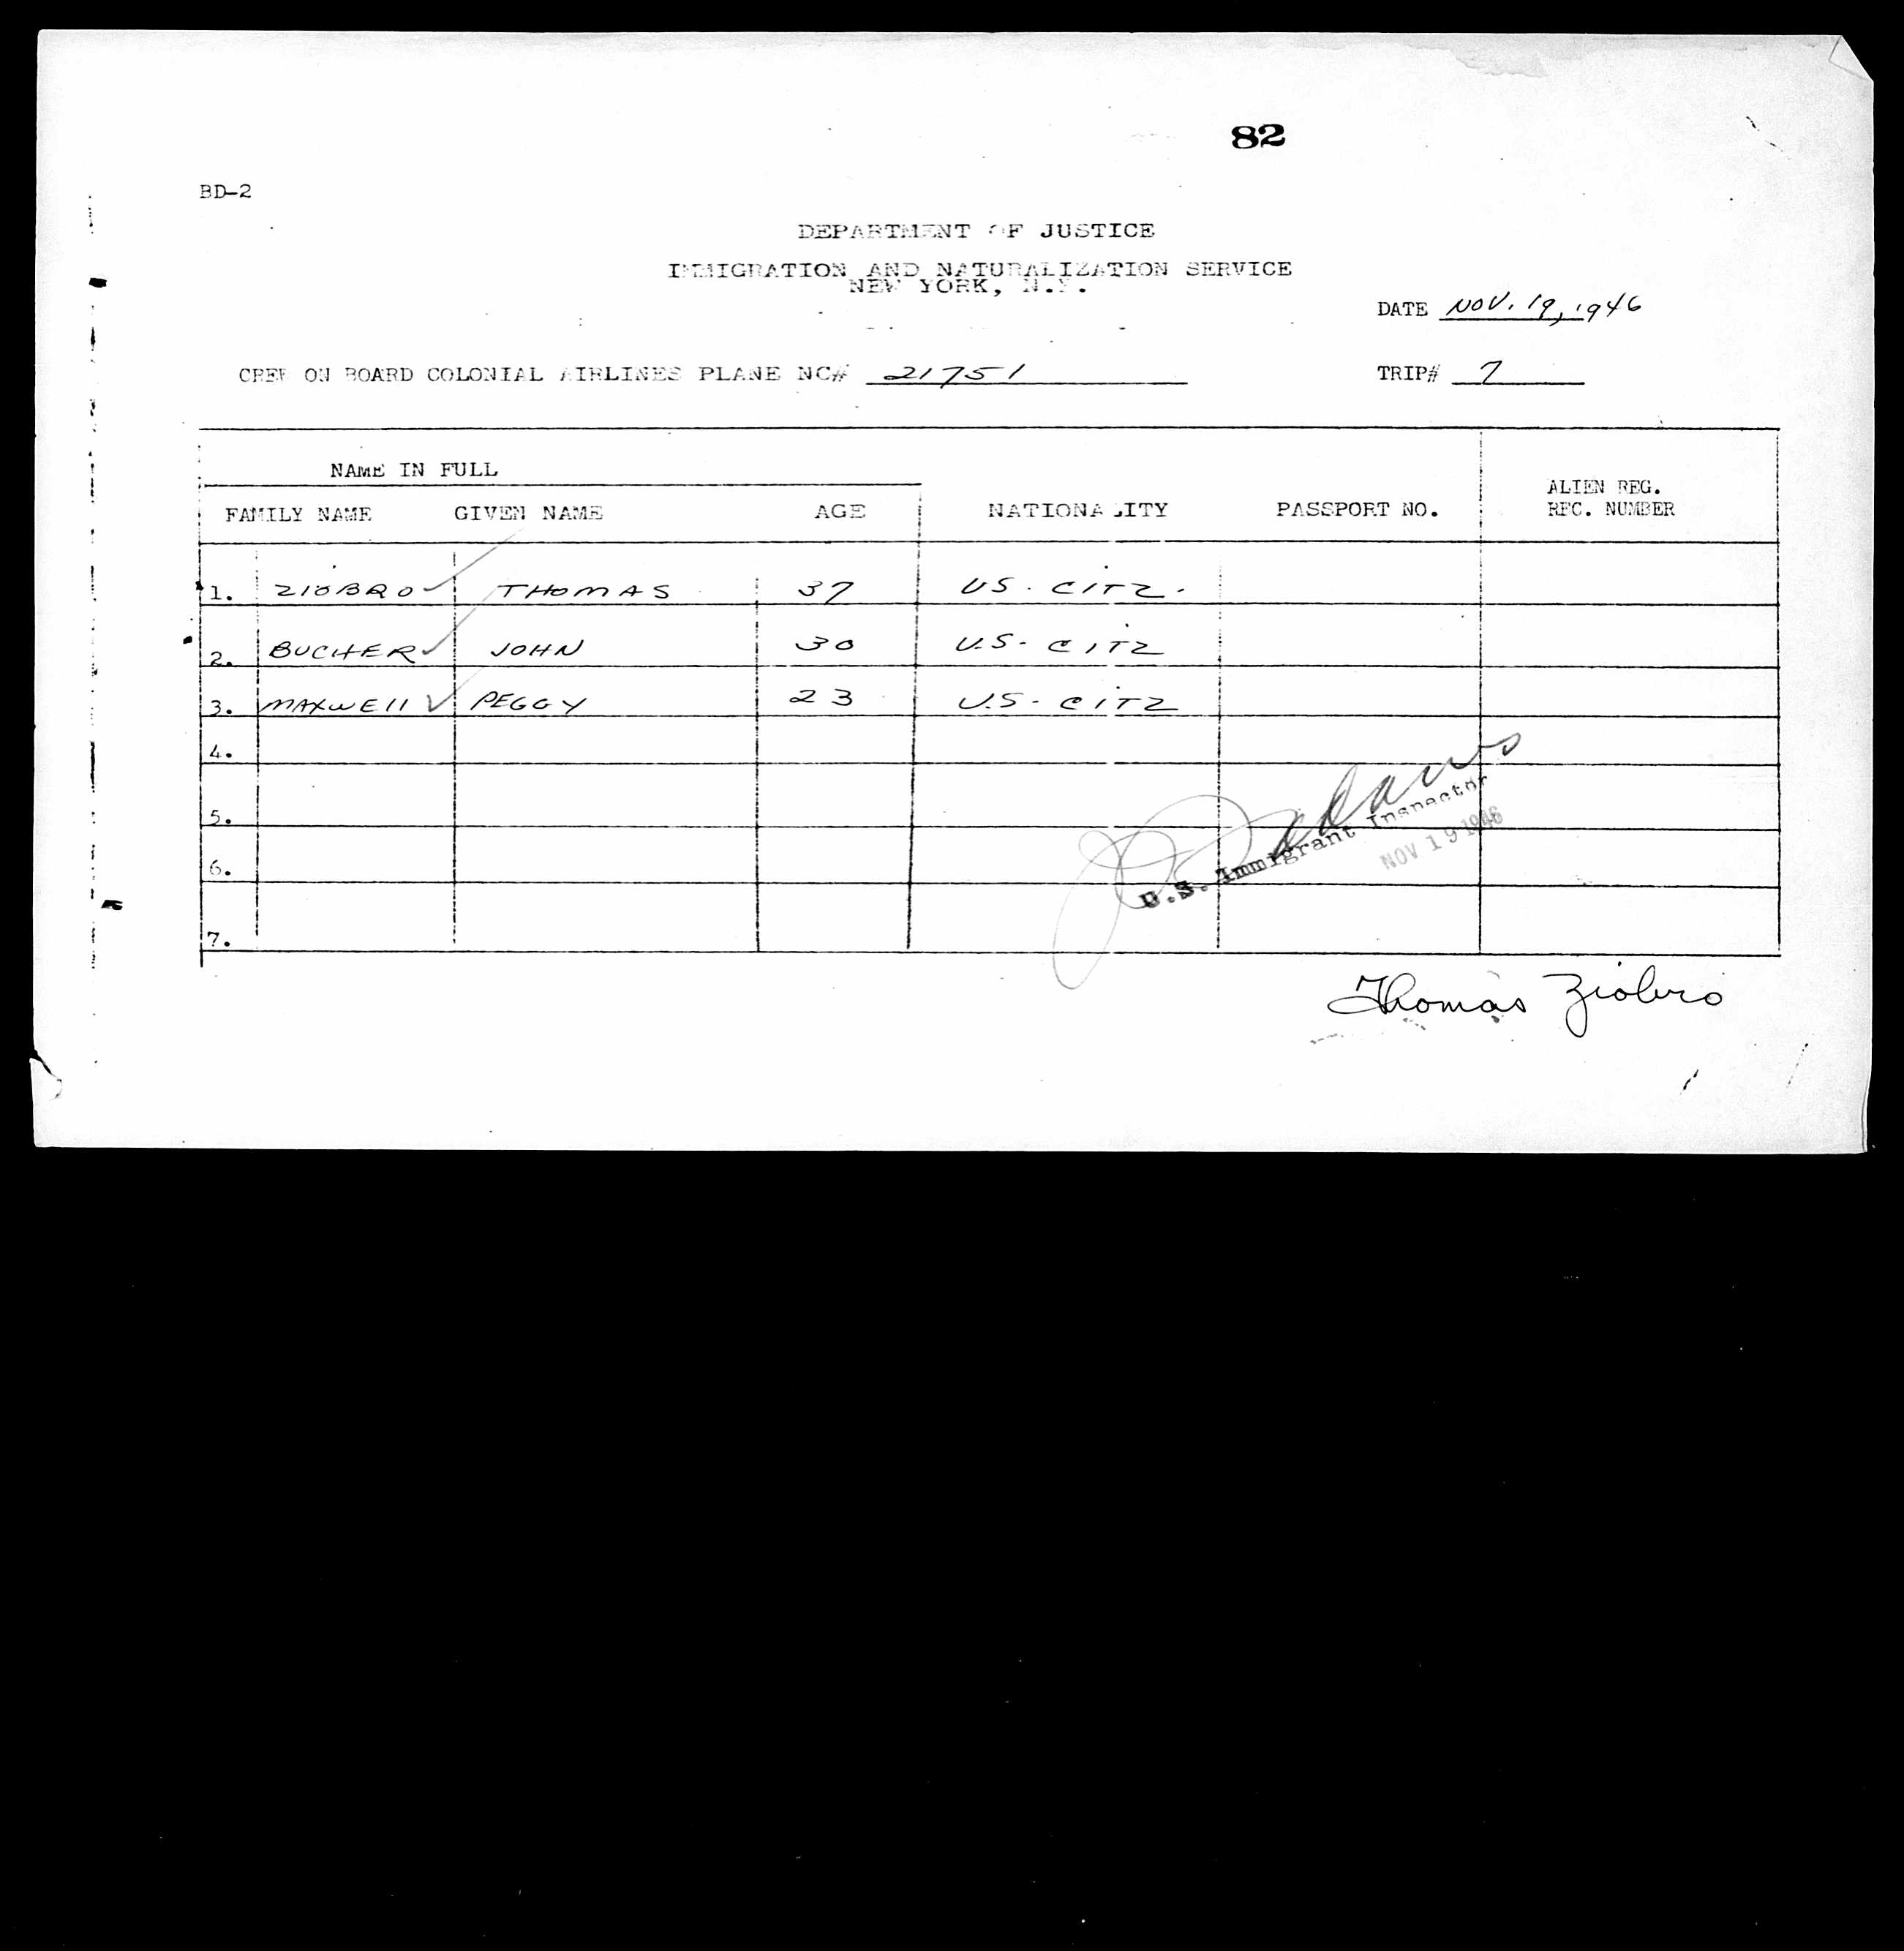 82
BD-2
DEPARTMENT OF JUSTICE
IMMIGRATION AND NATURALIZATION SERVICE
NEW YORK, N.Y.
DATE NOV. 19, 1946
CREW ON BOARD COLONIAL AIRLINES PLANE NC# 21751 TRIP# 7
NAME IN FULL
FAMILY NAME GIVEN NAME AGE NATIONALITY PASSPORT NO. ALIEN REG. REC. NUMBER
1. ZIOBRO ✓ THOMAS 37 US. CITZ.
2. BUCHER ✓ JOHN 30 U.S. CITZ
3. MAXWELL ✓ PEGGY 23 U.S. CITZ
4.
5.
6.
7.
U.S. Immigrant Inspector
NOV 19 1946
Thomas Ziobro